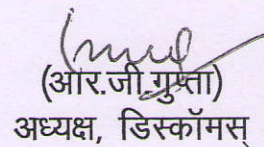 (आर.जी.गुप्ता)
अध्यक्ष, डिस्कॉमस्